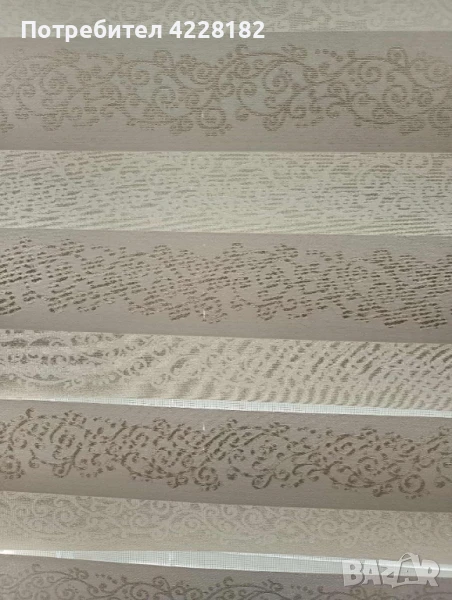 Потребител 4228182
BAZAR